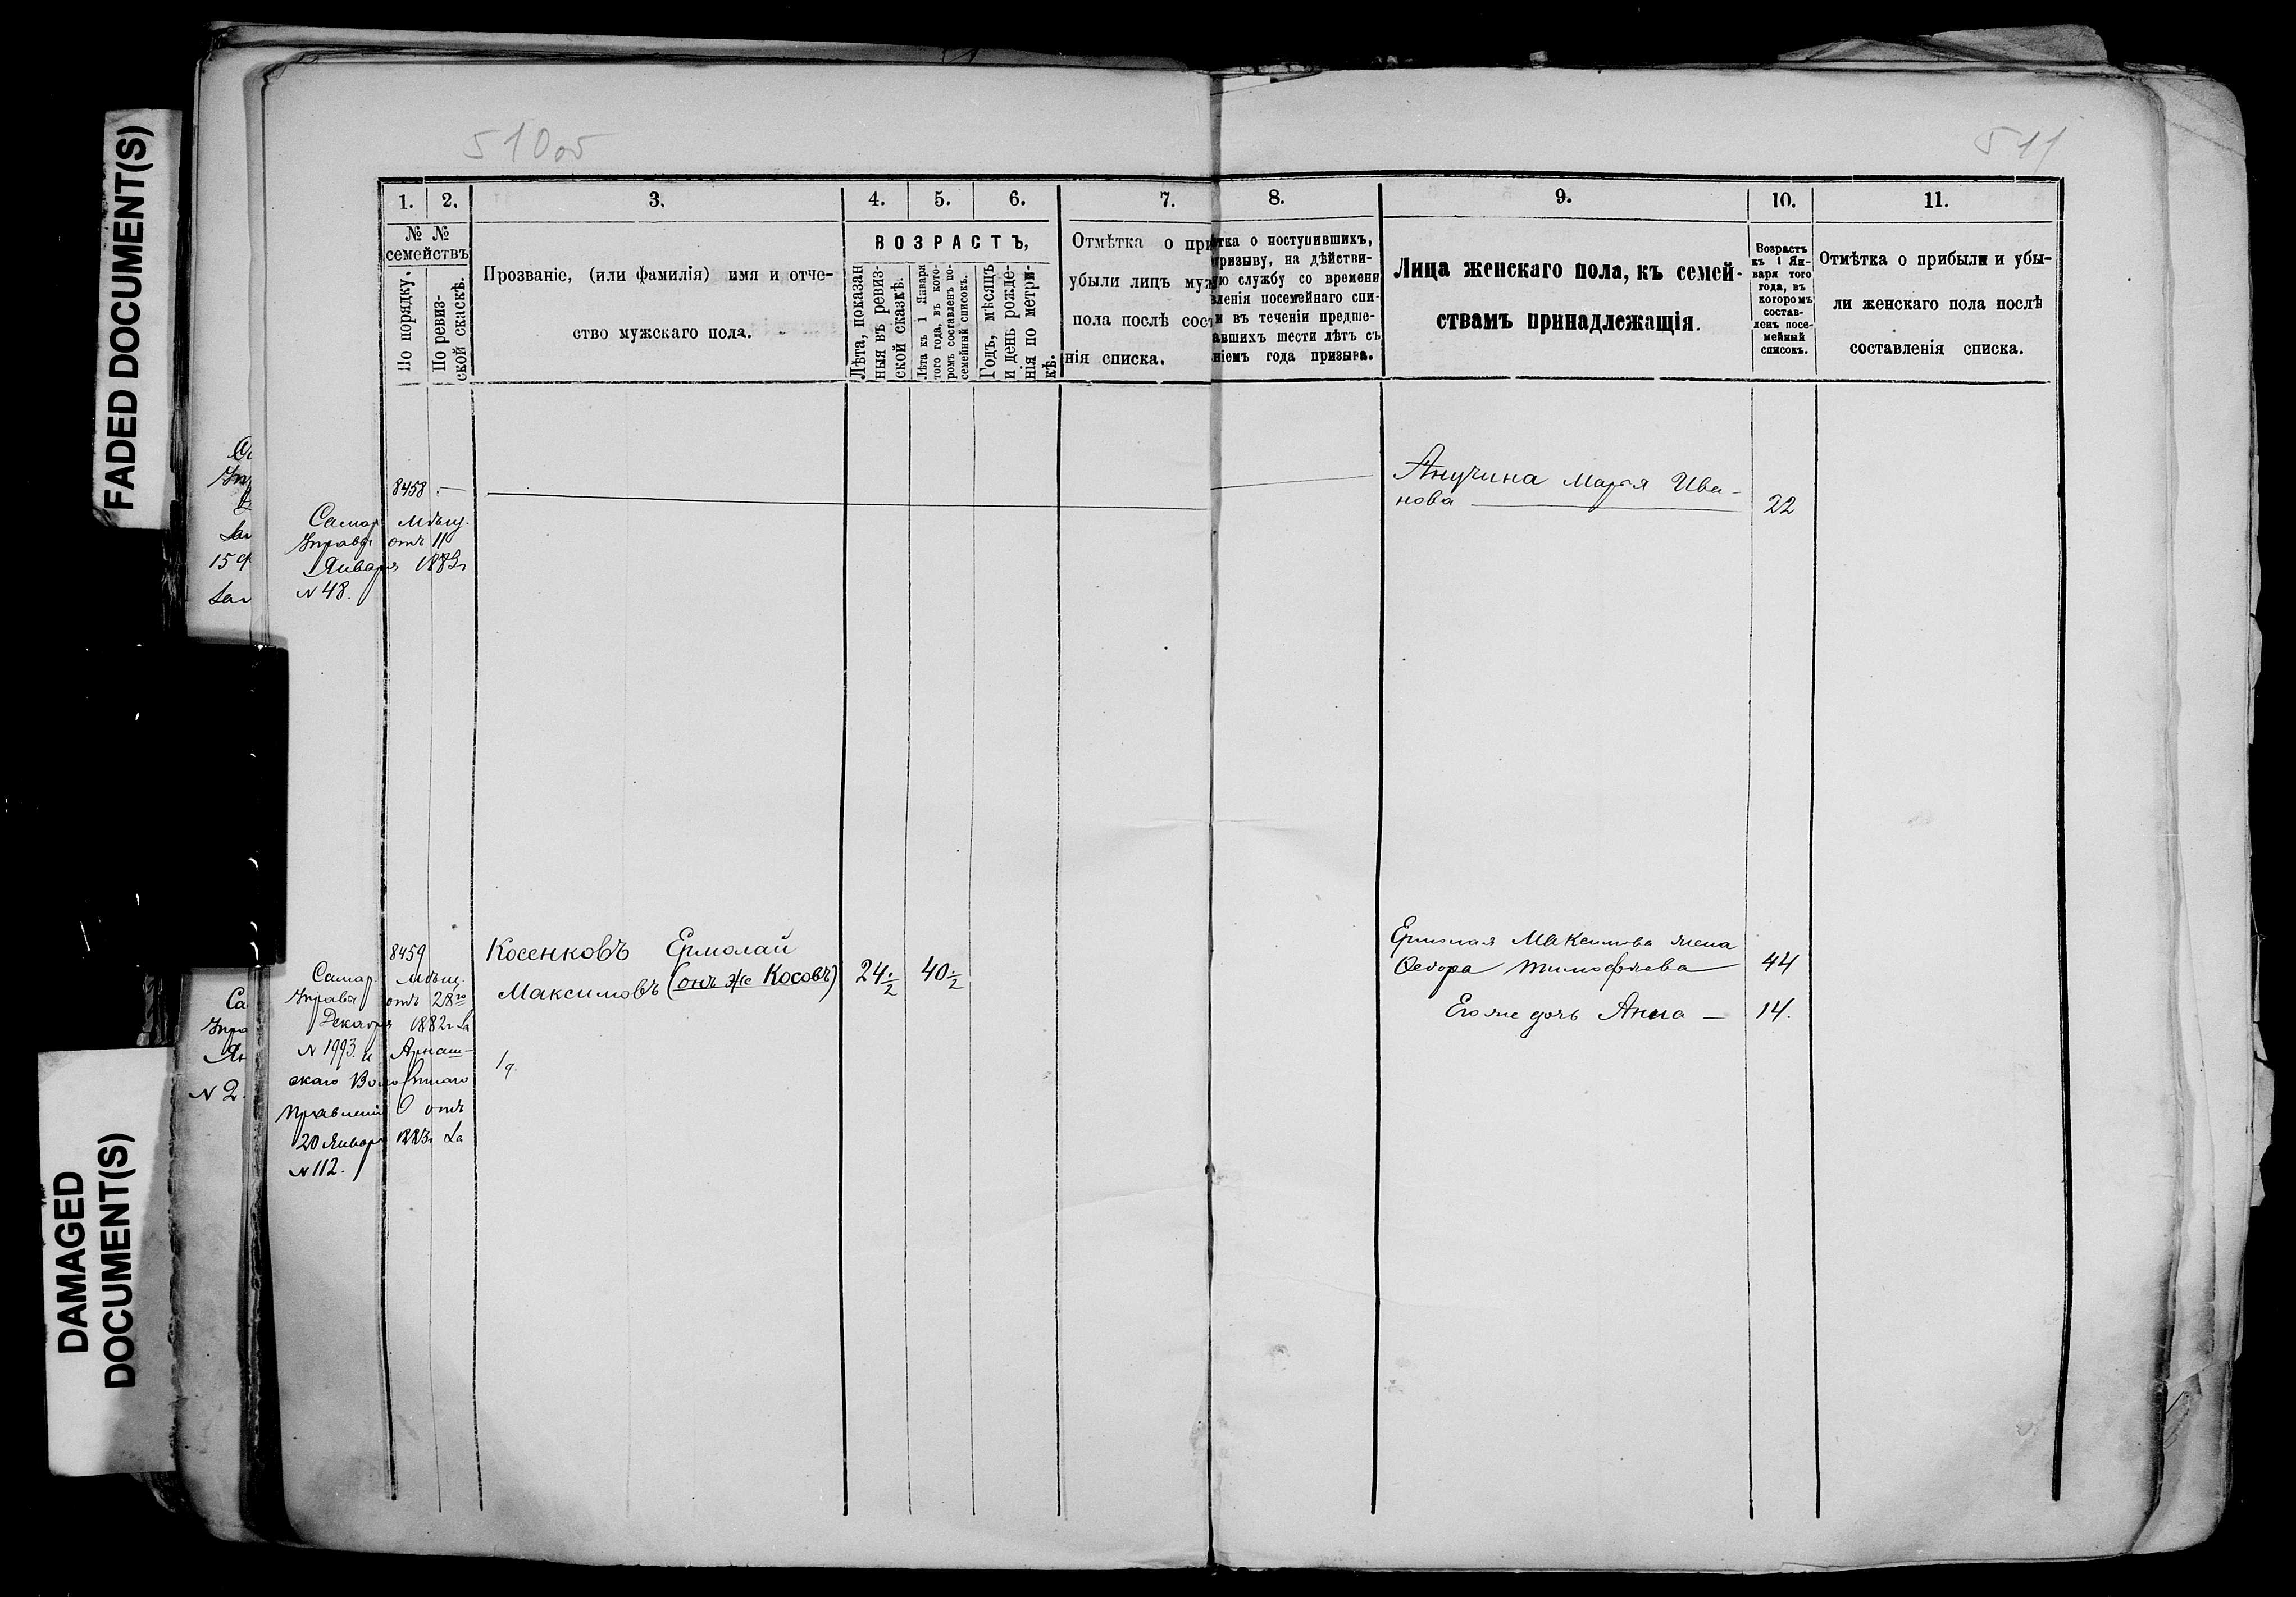 FADED DOCUMENT(S)
DAMAGED
DOCUMENT(S)
510об
511
1. 2. 3. 4. 5. 6. 7. 8. 9. 10. 11.
№ №
семействъ
По порядку.
По ревиз-
ской скаскѣ.
Прозваніе, (или фамилія) имя и отче-
ство мужскаго пола.
ВОЗРАСТЪ,
Лѣта, показан
ныя въ ревиз-
ской сказкѣ.
Лѣта къ 1 Января
того года, въ кото-
ромъ составленъ по-
семейный списокъ.
Годъ, мѣсяцъ
и день рожде-
нія по метри-
кѣ.
Отмѣтка о при
убыли лицъ муж
пола послѣ сост
нія списка.
тка о поступившихъ,
призыву, на дѣйстви-
ую службу со времени
вленія посемейнаго спи-
и въ теченіи предше-
авшихъ шести лѣтъ съ
ніемъ года призыва.
Лица женскаго пола, къ семей-
ствамъ принадлежащія.
Возрастъ
къ 1 Ян-
варя того
года, въ
которомъ
состав-
ленъ посе-
мейный
списокъ.
Отмѣтка о прибыли и убы-
ли женскаго пола послѣ
составленія списка.
8458 —
Самар. Мѣщ.
Управы отъ 11
Января 1883г
№ 48.
Анучина Марья Ива-
нова 22
8459
Самар. Мѣщ.
Управы отъ 28го
Декабря 1882г за
№ 1993. и
скаго Волостнаго
Правленія отъ
20 Января 1883г за
№ 112.
Косенковъ Ермолай
Максимовъ (онъ же Косовъ) 24½ 40½
Ермолая Максимова жена
Федора Тимофѣева 44
Его же дочь Анна — 14.